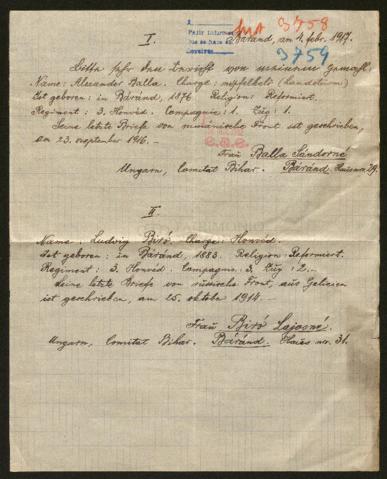 I.
Fait 3758
Báránd, am 1. febr. 1917.
3759
Bitte sehr das Auskunft von meinem Gemahl:
Name: Alexander Balla. Charge: (Landsturm)
Ist geboren: in Báránd, 1876. Religion: Reformiert.
Regiment: 3. Honvéd. Compagnie: 1. Zug: 1.
Seine letzte Briefe von rumänische Front ist geschrieben,
am 23. september 1916.
Frau Balla Sándorné
Ungarn, Comitat Bihar. Báránd. Hausnr 29.
II.
Name: Ludwig Biró. Charge: Honvéd.
Ist geboren: in Báránd, 1883. Religion: Reformiert.
Regiment: 3. Honvéd. Compagnie. 3. Zug: 2.
Seine letzte Briefe von russische Front, aus Galizien
ist geschrieben, am 25. oktober 1914.
Frau Biró Lajosné.
Ungarn, Comitat Bihar. Báránd. Haus nr. 31.